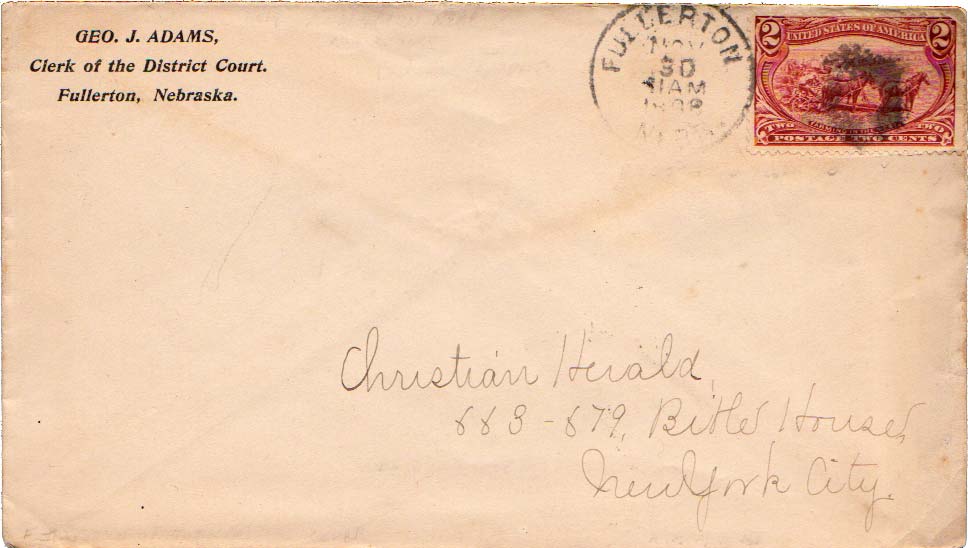 GEO. J. ADAMS,
Clerk of the District Court.
Fullerton, Nebraska.
FULLERTON
NOV
30
1898
2 UNITED STATES OF AMERICA 2
TWO TWO
POSTAGE TWO CENTS
Christian Herald,
Bible House,
New York City.